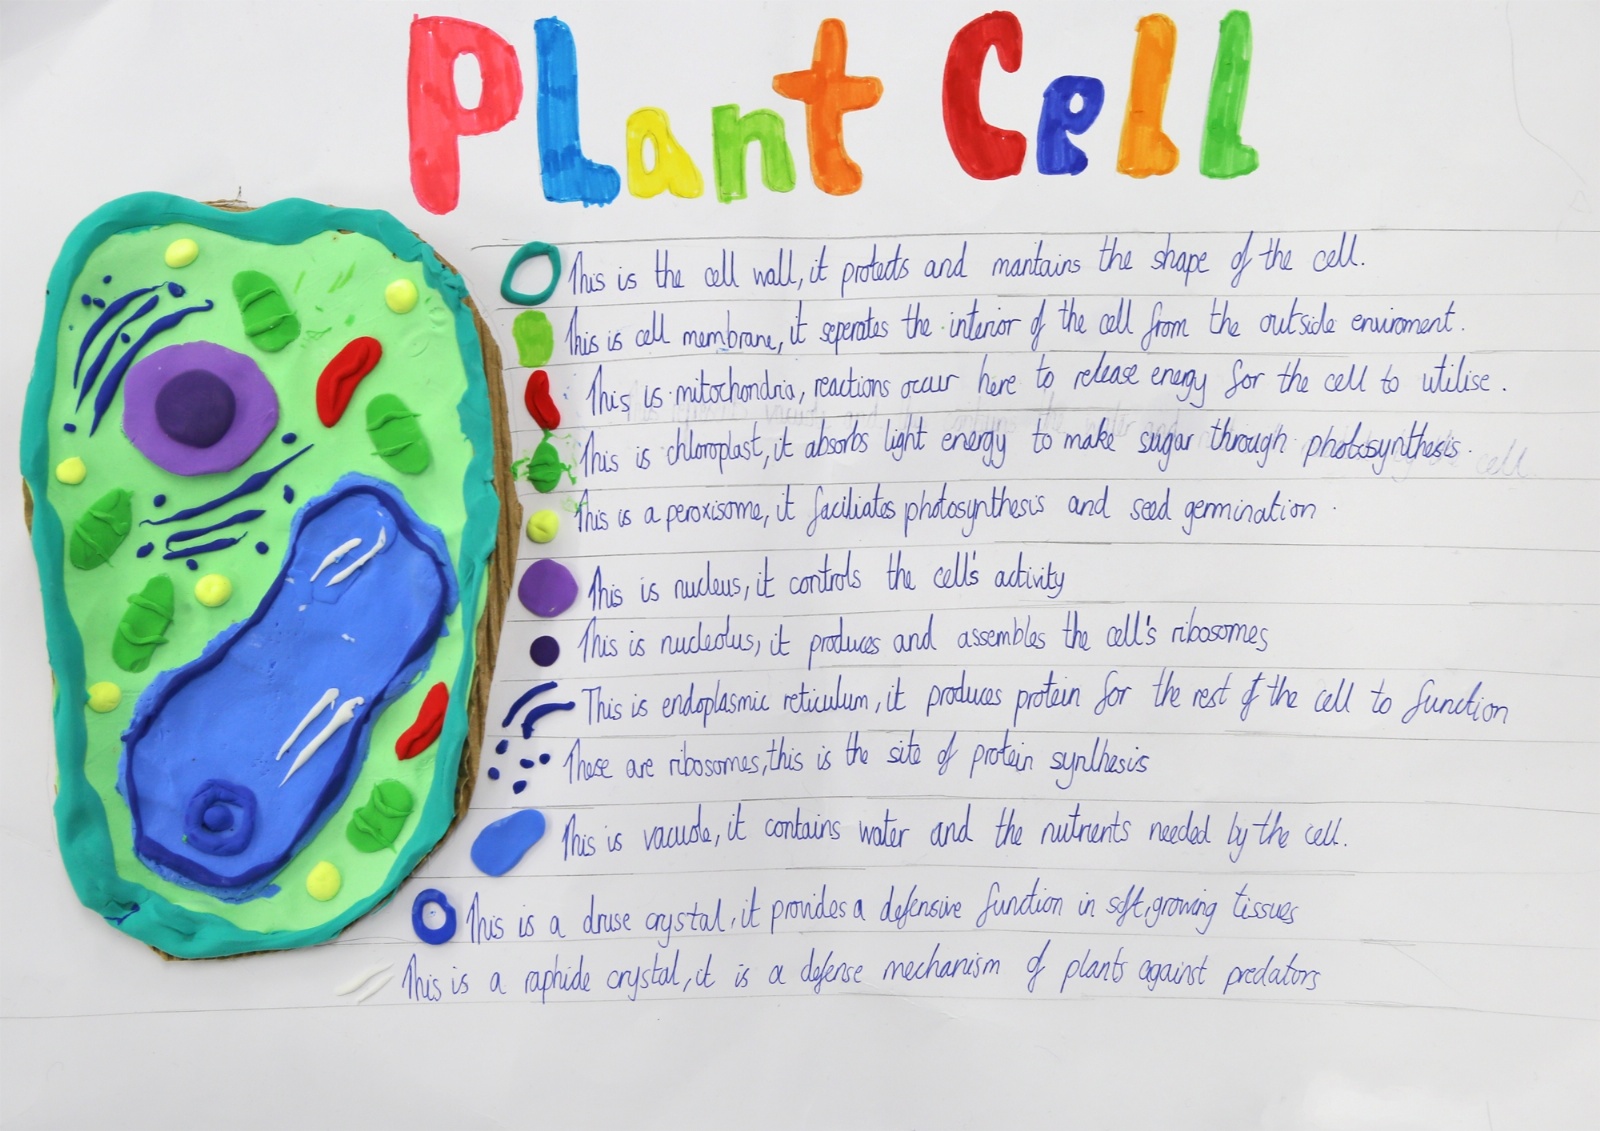 PLant Cell
This is the cell wall, it protects and mantains the shape of the cell.
This is cell membrane, it seperates the interior of the cell from the outside enviroment.
This is mitochondria, reactions occur here to release energy for the cell to utilise.
This is chloroplast, it absorbs light energy to make sugar through photosynthesis.
This is a peroxisome, it faciliates photosynthesis and seed germination.
This is nucleus, it controls the cell's activity
This is nucleolus, it produces and assembles the cell's ribosomes
This is endoplasmic reticulum, it produces protein for the rest of the cell to function
These are ribosomes, this is the site of protein synthesis
This is vacuole, it contains water and the nutrients needed by the cell.
This is a druse crystal, it provides a defensive function in soft, growing tissues
This is a raphide crystal, it is a defense mechanism of plants against predators